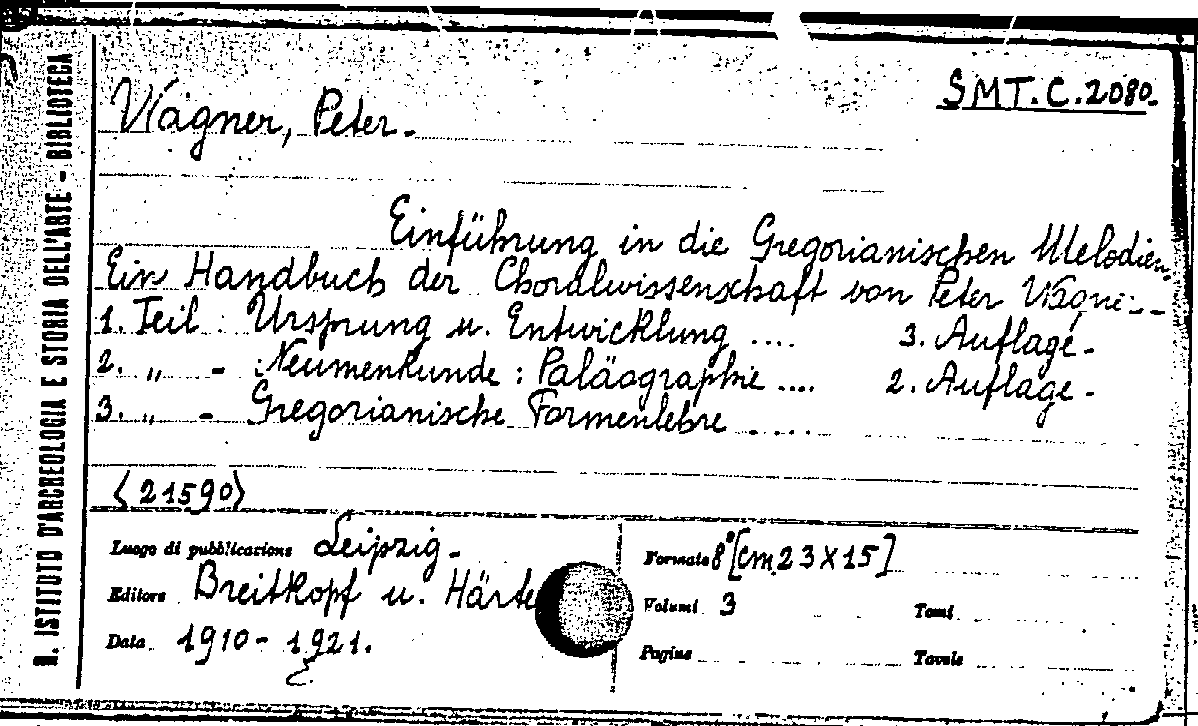 R. ISTITUTO D'ARCHEOLOGIA E STORIA DELL'ARTE - BIBLIOTECA
Wagner, Peter.
SMT.C.2080.
Einführung in die Gregorianischen Melodien.
Ein Handbuch der Choralwissenschaft von Peter Wagne
1. Teil : Ursprung u. Entwicklung .... 3. Auflage -
2. „ - Neumenkunde : Paläographie .... 2. Auflage -
3. „ - Gregorianische Formenlehre .....
<21590>
Luogo di pubblicazione Leipzig -
Editore Breitkopf u. Härte
Data 1910 - 1921.
Formato 8° [cm 23 X 15]
Volumi 3 Tomi
Pagine Tavole